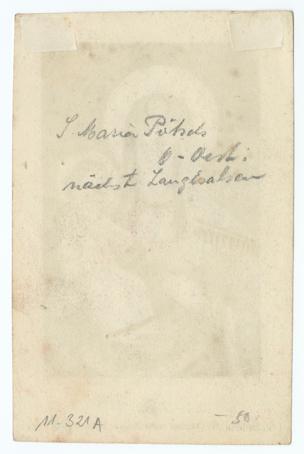 S Maria Pötsch
O-Oest:
nächst Langhalsen
11-321A
-50